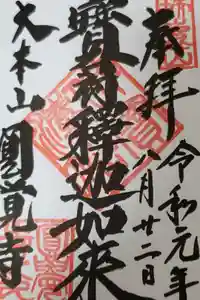 奉拝
令和元年
八月廿二日
寶冠釋迦如來
大本山圓覺寺